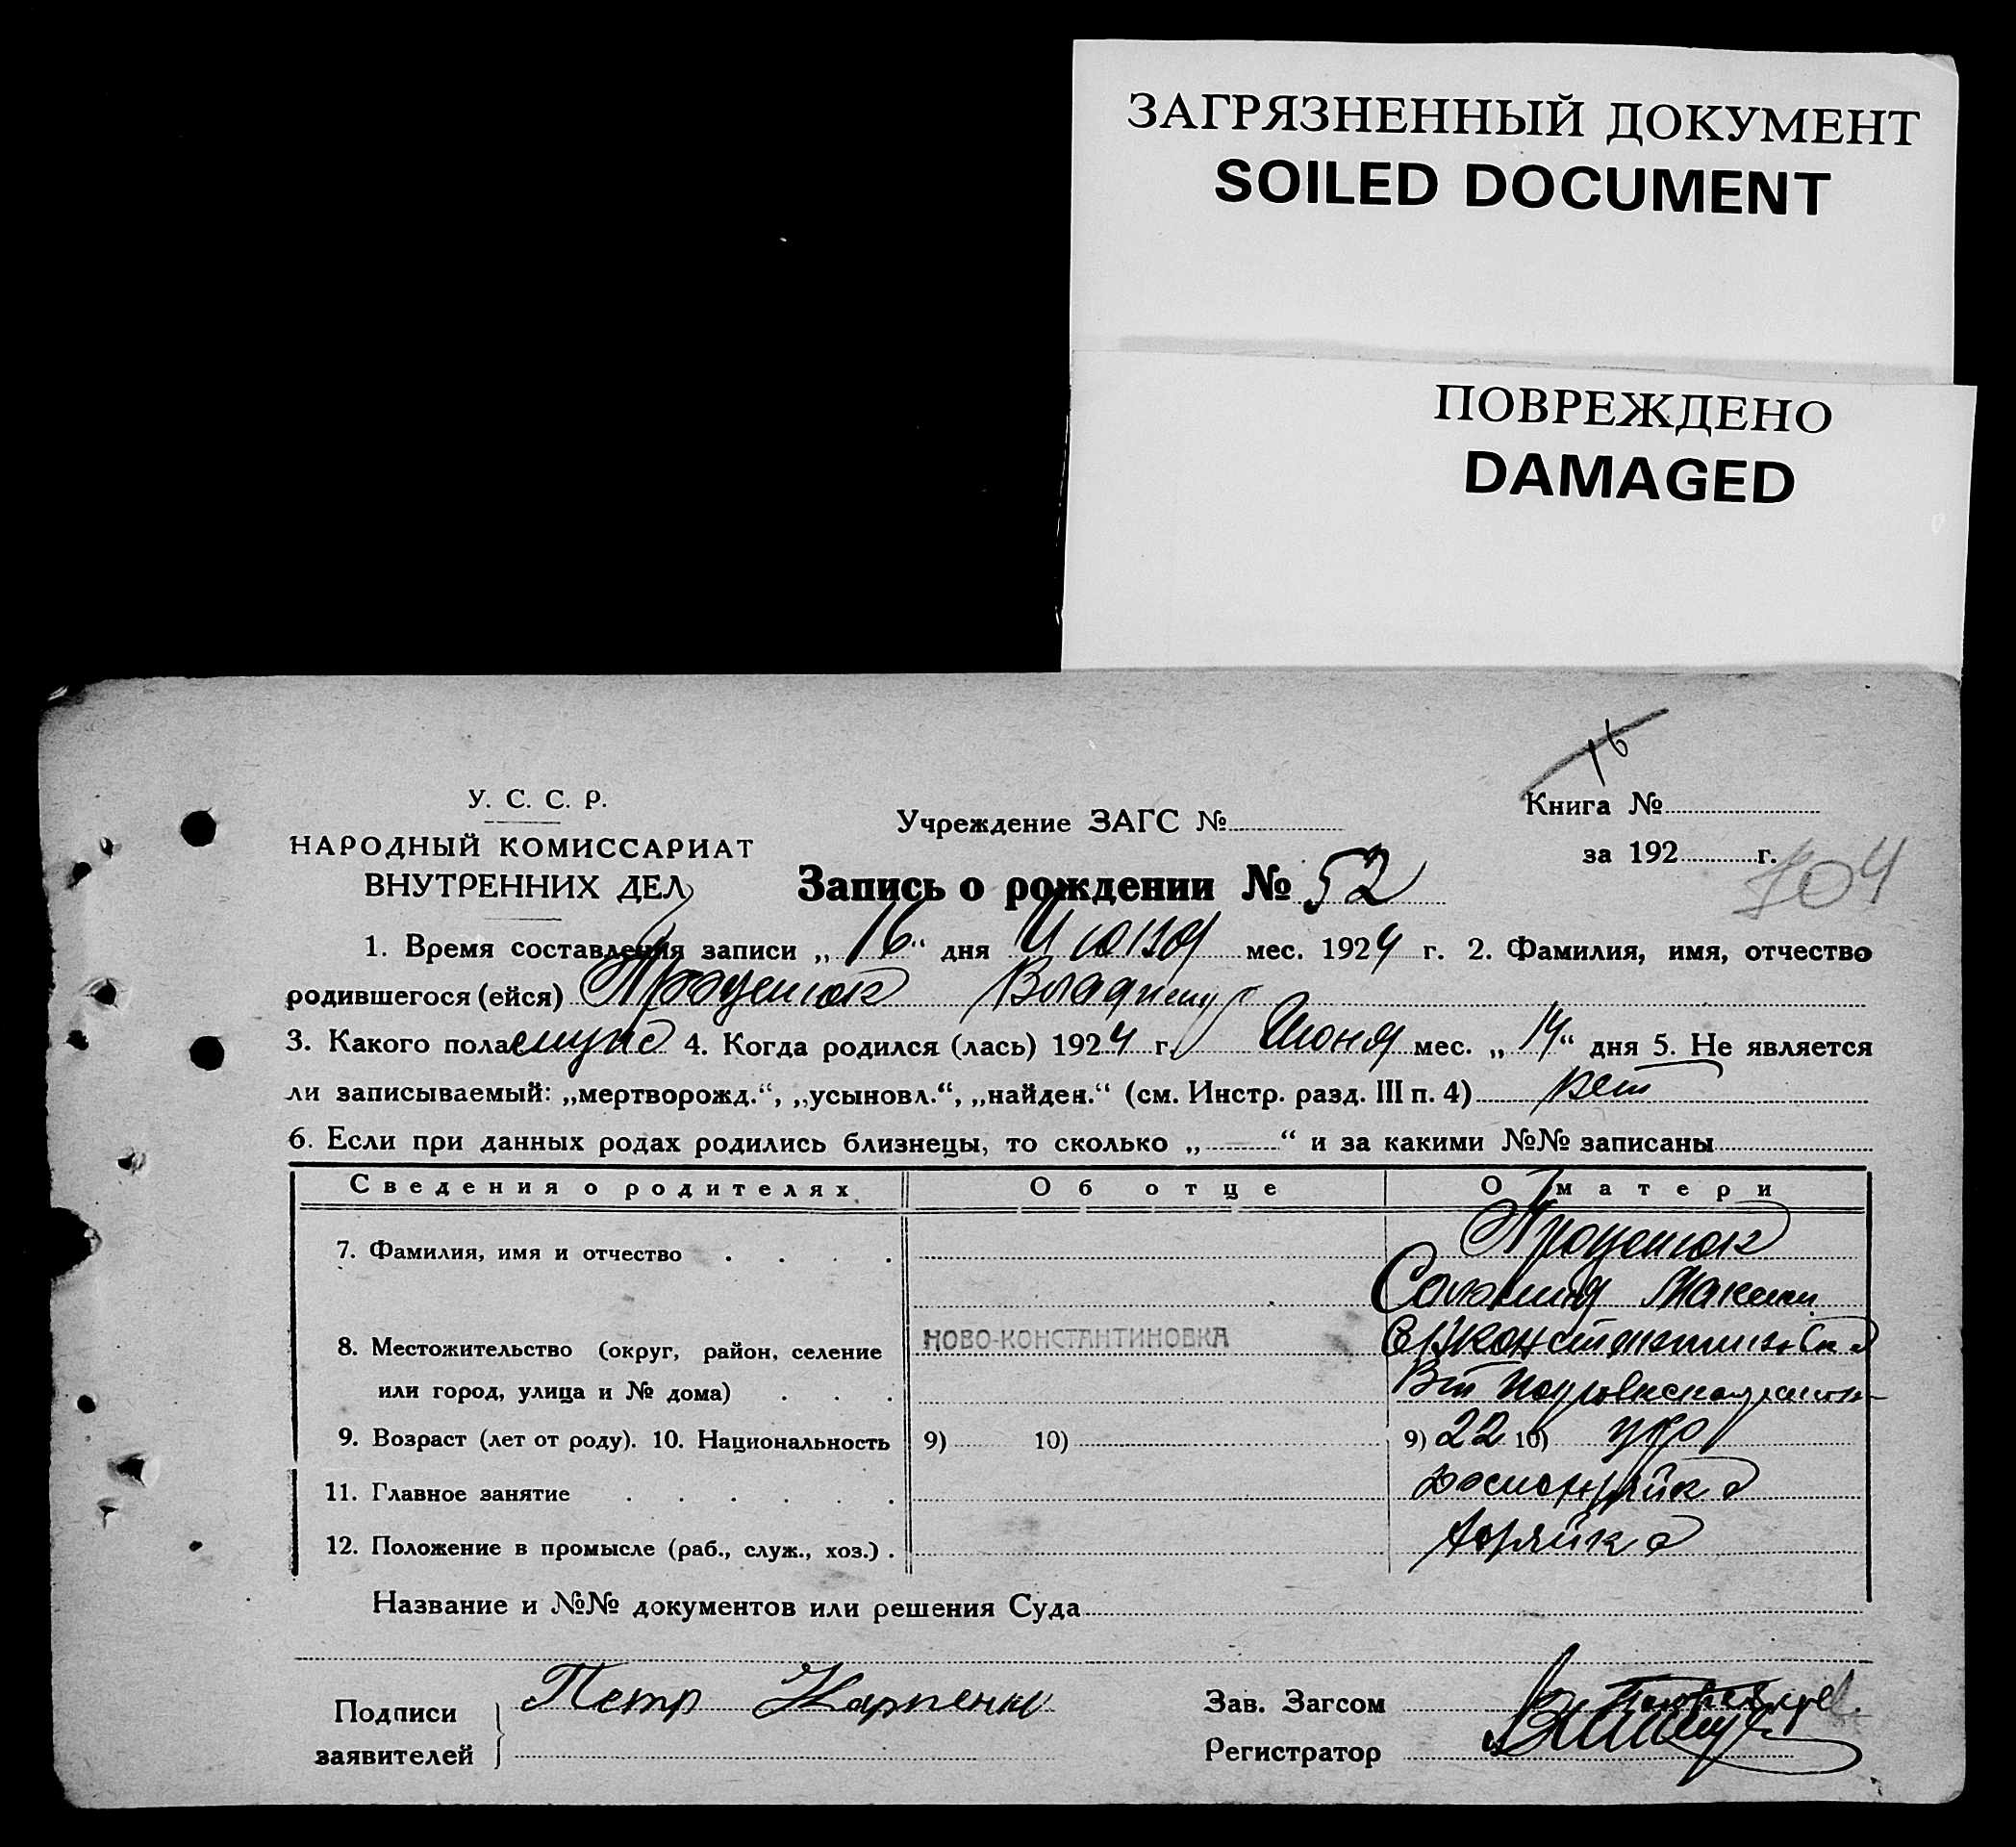 ЗАГРЯЗНЕННЫЙ ДОКУМЕНТ
SOILED DOCUMENT
ПОВРЕЖДЕНО
DAMAGED
16
У. С. С. Р.
НАРОДНЫЙ КОМИССАРИАТ
ВНУТРЕННИХ ДЕЛ
Учреждение ЗАГС №
Книга №
за 192 г.
704
Запись о рождении № 52
1. Время составления записи „16“ дня Июня мес. 1924 г. 2. Фамилия, имя, отчество
родившегося (ейся) Процентюк Владимир
3. Какого пола муж 4. Когда родился (лась) 1924 г. Июня мес. „14“ дня 5. Не является
ли записываемый: „мертворожд.“, „усыновл.“, „найден.“ (см. Инстр. разд. III п. 4)
6. Если при данных родах родились близнецы, то сколько „ “ и за какими №№ записаны
Сведения о родителях Об отце О матери
7. Фамилия, имя и отчество
Соломия Максим
8. Местожительство (округ, район, селение НОВО-КОНСТАНТИНОВКА
или город, улица и № дома)
9. Возраст (лет от роду). 10. Национальность 9) 10) 9) 22 10) укр
11. Главное занятие
12. Положение в промысле (раб., служ., хоз.)
Название и №№ документов или решения Суда
Подписи
заявителей
Петр Карпенко
Зав. Загсом
Регистратор